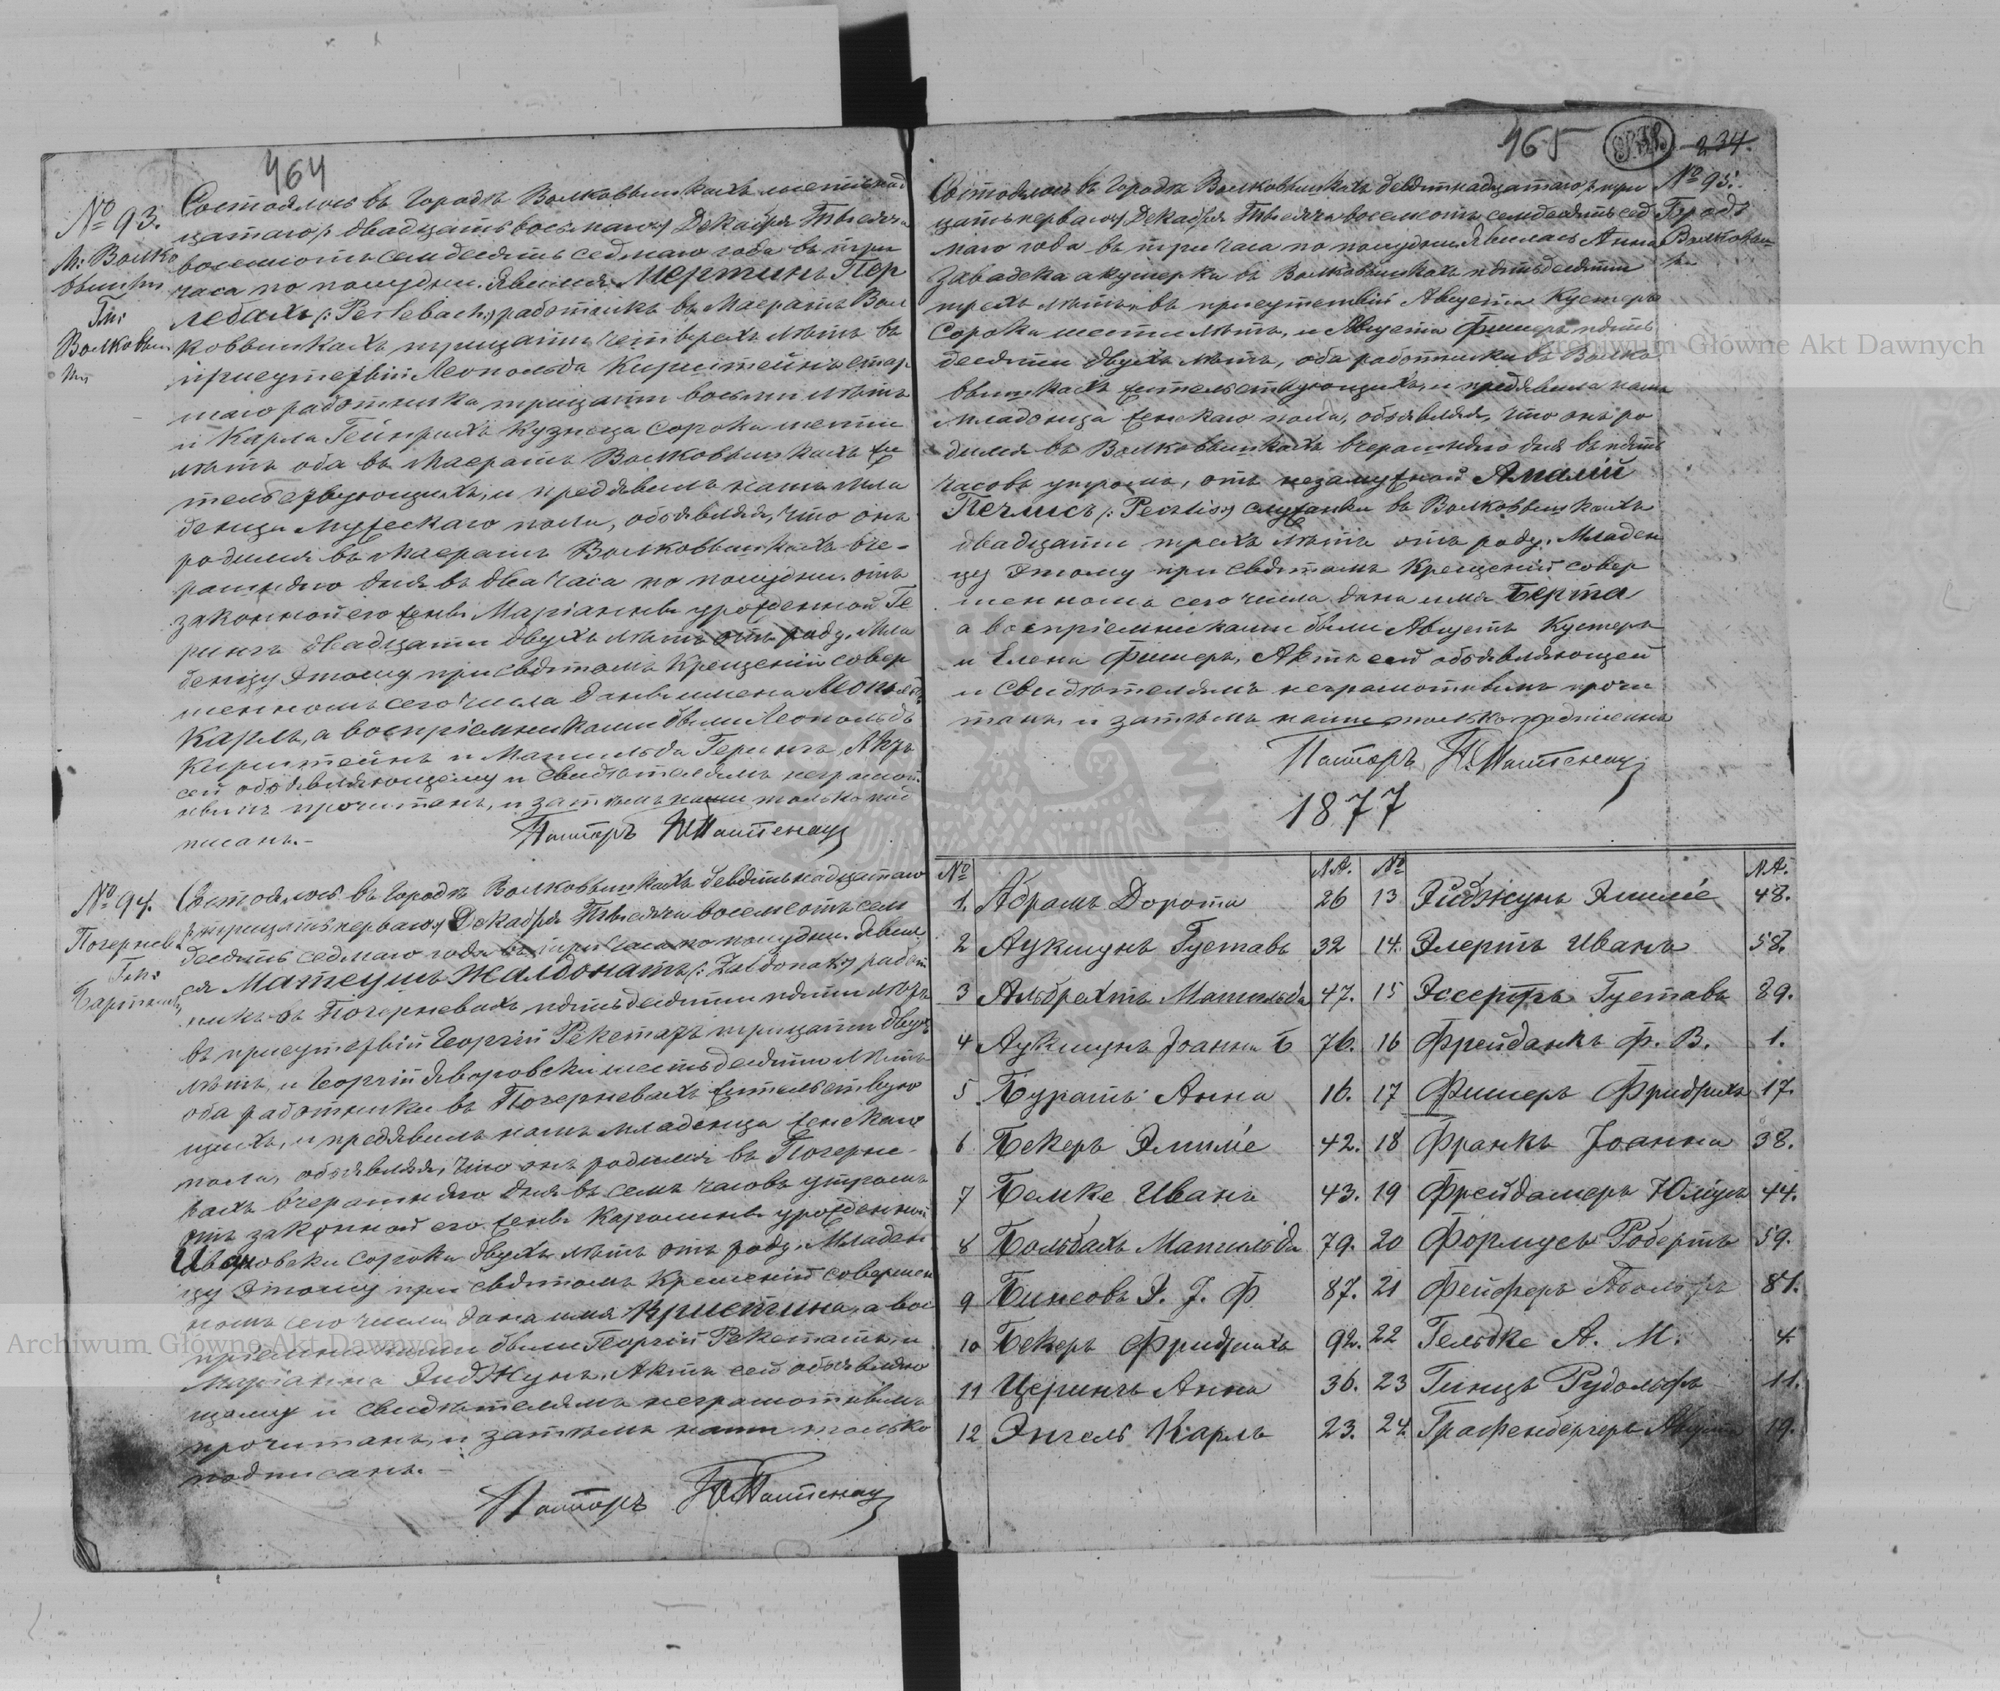 464
№ 93.
М: Волко
вышки
Гм:
Волковыш
ки
Состоялось въ Городѣ Волковышкахъ шестнад
цатаго /: двадцать восьмаго Декабря Тысяча
восемсотъ семдесятъ седмаго года въ три
часа по полудни. Явился Мертинъ Пер
лебахъ /: Perlebach:/ работникъ въ Маератъ Вол
ковышкахъ трицати четырехъ лѣтъ въ
присутствіи Леопольда Кирштейнъ стар
шаго работника трицати восьми лѣтъ
и Карла Гейнрихъ Кузнеца сорока шести
лѣтъ оба въ Маератъ Волковышкахъ жи
тельствующихъ, и предявилъ намъ мла
денца мужескаго пола, объявляя, что онъ
родился въ Маератъ Волковышкахъ вче-
рашняго дня въ два часа по полудни отъ
законной его жены Маріанны урожденной Ге
рингъ двадцати двухъ лѣтъ отъ роду. Мла
денцу этому при святомъ Крещеніи совер
шенномъ сего числа даны имена Леопольдъ
Карлъ, а воспріемниками были Леопольдъ
Кирштейнъ и Матильда Герингъ, Актъ
сей объявляющему и свидѣтелямъ неграмот
нымъ прочитанъ, и затѣмъ нами только под
писанъ.-
Пасторъ
№ 94.
Погернев
Гм:
Бартники
Состоялось въ Городѣ Волковышкахъ девятьнадцатаго
/: трицать перваго:/ Декабря Тысяча восемсотъ сем
десятъ седмаго года въ три часа по полудни. Явил
ся Матеушъ Жалдонатъ /: Zaldonat:/ работ
никъ въ Погерневахъ пятьдесяти пяти лѣтъ
въ присутствіи Георгій Рекетатъ трицати двухъ
лѣтъ, и Георгій Яворовски шестьдесяти лѣтъ
оба работники въ Погерневахъ жительствую
щихъ, и предявилъ намъ младенца женскаго
пола, объявляя, что онъ родился въ Погерне-
вахъ вчерашняго дня въ семь часовъ утромъ
отъ законной его жены Каролины урожденной
сорока двухъ лѣтъ отъ роду. Младен
цу этому при святомъ Крещеніи совершен
номъ сего числа дано имя Кристина, а вос
пріемниками были Георгій Рекетатъ, и
Маріанна Эйджунъ, Актъ сей объявляю
щему и свидѣтелямъ неграмотнымъ
прочитанъ, и затѣмъ нами только
подписанъ.-
Пасторъ
465
234.
№ 95.
Городъ
Волковыш
ки
Состоялось въ Городѣ Волковышкахъ девятнадцатаго /: три
цать перваго:/ Декабря Тысяча восемсотъ семдесятъ сед
маго года въ три часа по полудни. Явилась Анна
Завадска акушерка въ Волковышкахъ пятьдесяти
трехъ лѣтъ, въ присутствіи Августа Кустеръ
сорока шести лѣтъ, и Августа Фишеръ пять
десяти двухъ лѣтъ, оба работники въ Волко
вышкахъ жительствующихъ, и предявила намъ
младенца женскаго пола, объявляя, что онъ ро
дился въ Волковышкахъ вчерашняго дня въ пять
часовъ утромъ, отъ незамужной Амаліи
Печлисъ служанки въ Волковышкахъ
двадцати трехъ лѣтъ отъ роду. Младен
цу этому при святомъ Крещеніи совер
шенномъ сего числа дано имя Берта
а воспріемниками были Августъ Кустеръ
и Елена Фишеръ, Актъ сей объявляющей
и свидѣтелямъ неграмотнымъ прочи
танъ, и затѣмъ нами только подписанъ
Пасторъ
1877
№ № А. № № А.
1. Абрамъ Дорота 26 13 Эйджунъ Эмиліе 48.
2 Аукшунъ Густавъ 32 14. Элертъ Иванъ 58.
3 Альбрехтъ Матильда 47. 15 Эссертъ Густавъ 89.
4 Аукшунъ Іоанна Б 76. 16 Фрейданкъ Ф. В. 1.
5 Буратъ Анна 10. 17 Фишеръ Фридрихъ 17.
6 Бекеръ Эмиліе 42. 18 Франкъ Іоанна 38.
7 Бемке Иванъ 43. 19 Фрейдамеръ Юліусъ 44.
8 Больбахъ Матильда 79. 20 Формусъ Робертъ 59.
9 Э. J. Ф 87. 21 Фейферъ Адольфъ 81.
10 Бекеръ Фридрихъ 92. 22 Гельдке А. М. 4.
11 Церингъ Анна 36. 23 Гинцъ Рудольфъ 11.
12 Энгель Карлъ 23. 24. Графенбергеръ 19.
Archiwum Główne Akt Dawnych
Archiwum Główne Akt Dawnych